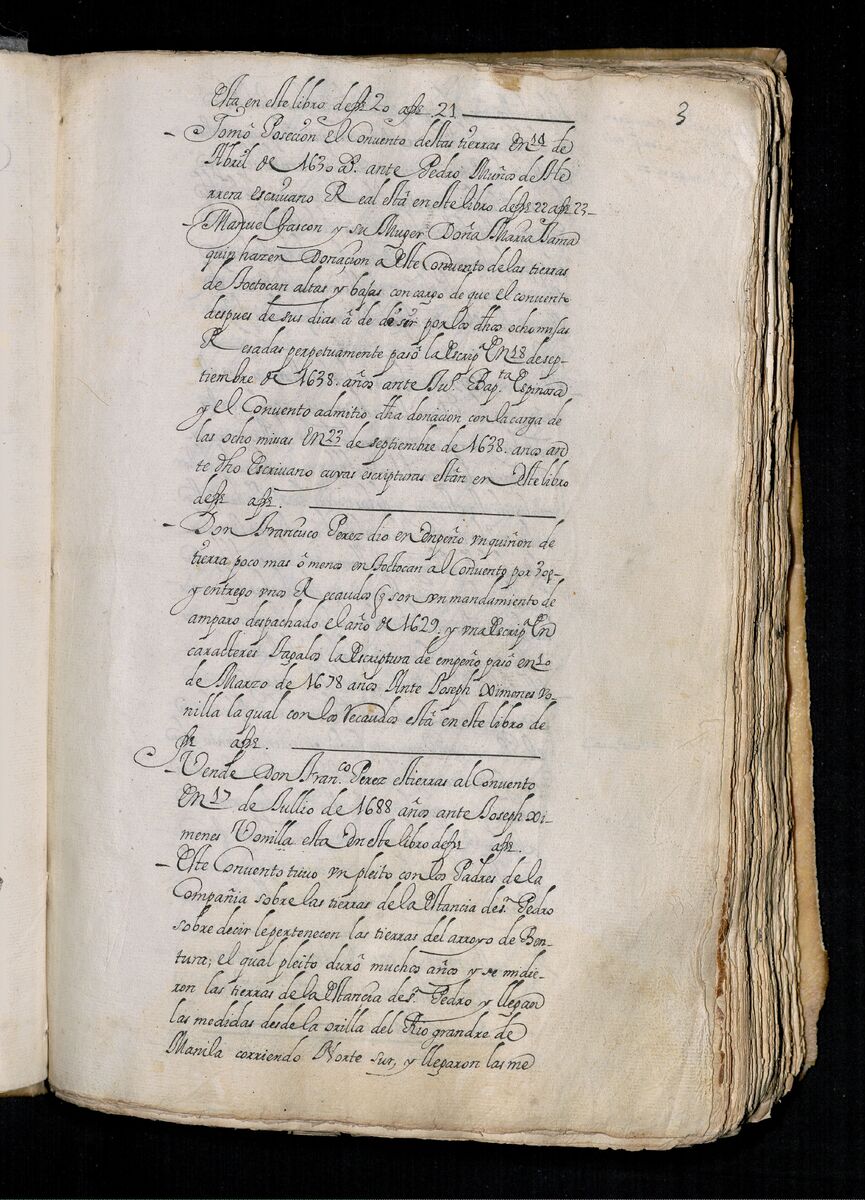 3
Esta en este libro de fs 20 a fs. 21
Tomó Posecion el Convento destas tierras En 14 de
Abril de 1630 as. ante Pedro Muños de He
rrera Escrivano Real está en este libro de fs 22 a fs 23
Manuel Gascon y su Muger Doña Maria Jama
quin hazen Donacion a Este Convento de las tierras
de Toctocan altas y bajas con cargo de que el convento
despues de sus dias á de desir por los dhos ocho misas
Resadas perpetuamente pasó la Escripa En 18 de sep-
tiembre de 1638. años ante Jun. Bapta Espinosa
y el Convento admitio dha donacion con la carga de
las ocho missas En 23 de septiembre de 1638. anos an
te dho Escrivano cuyas escripturas están en Este libro
de fs a fs.
Don Francisco Perez dio en enpeño vn quiñon de
tierra poco mas ó menos en Toctocan al Convento por 30ps
y entrego vnos Recaudos q son vn mandamiento de
amparo despachado el año de 1629. y vna Escripa En
caracteres Tagalos la Escriptura de empeño pasó en 10
de Marzo de 1678 años Ante Joseph Ximenes Vo-
nilla la qual con los recaudos está en este libro de
fs a fs.
Vende Don Franco Perez estierras al Convento
En 17 de Jullio de 1688 años ante Joseph Xi-
menes Vonilla esta En este libro de fs a fs.
Este Convento tuvo vn pleito con los Padres de la
Compañia sobre las tierras de la Estancia de Sn Pedro
sobre decir le pertenecen las tierras del arroyo de Ben-
tura; el qual pleito duró muchos años y se midie-
ron las tierras de la Estancia de Sn Pedro y llegan
las medidas desde la orilla del Rio grandre de
Manila corriendo Norte sur, y llegaron las me